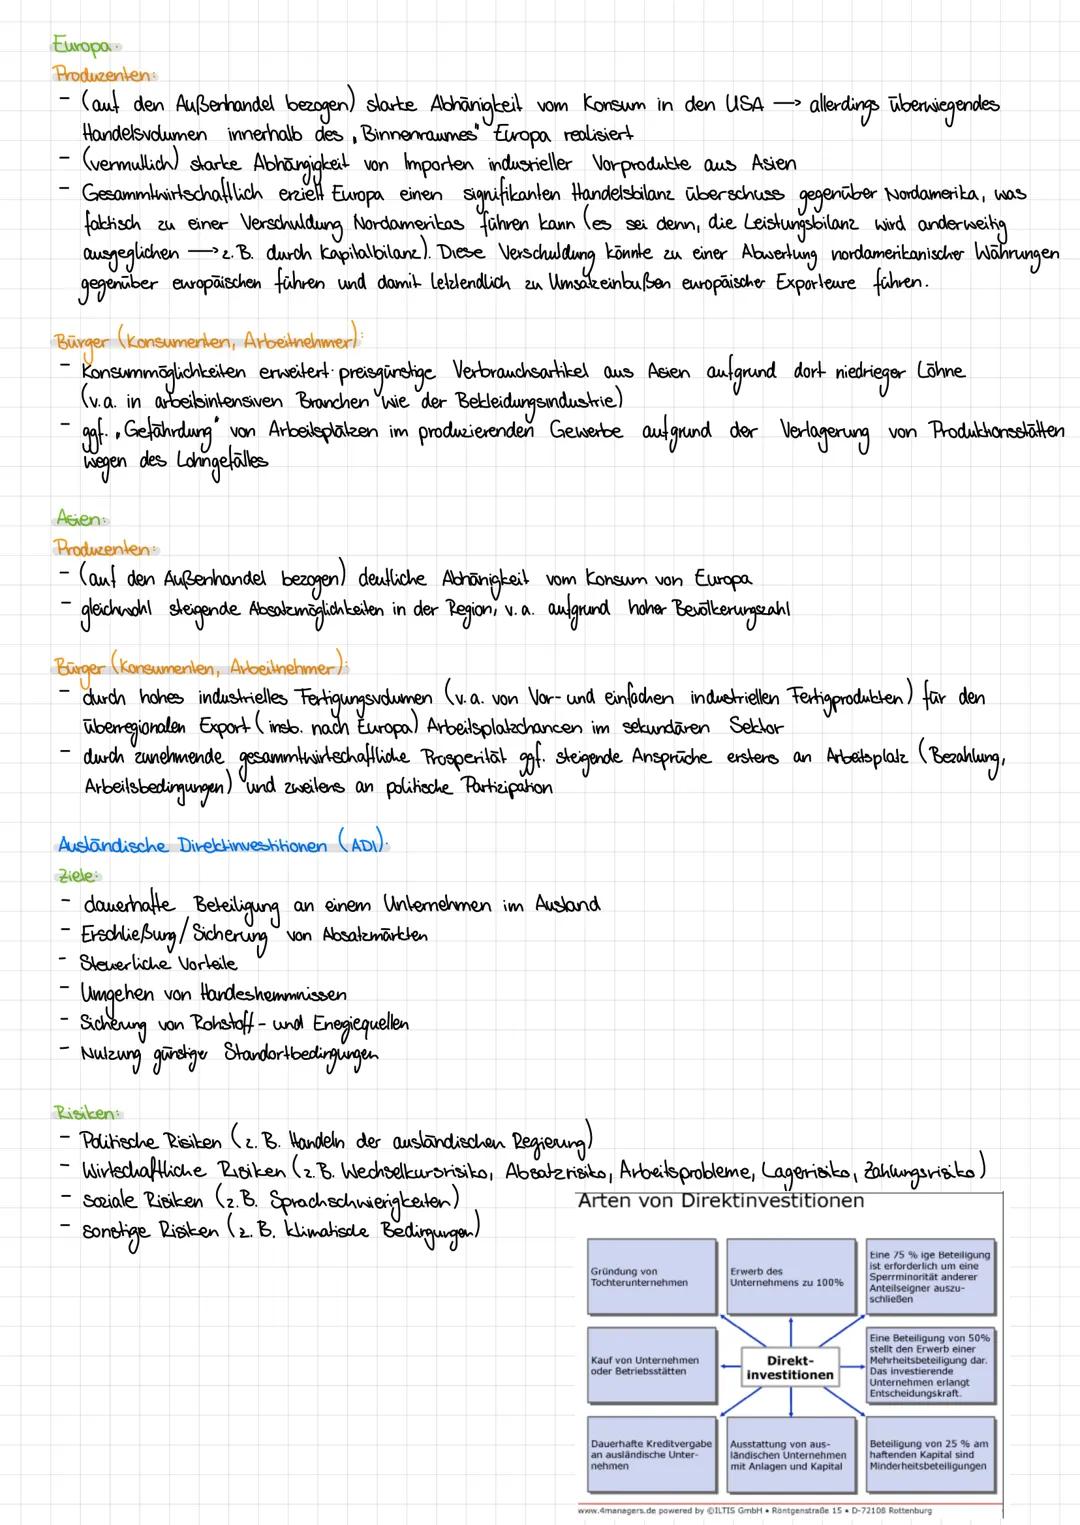 Europa:
Produzenten:
- (auf den Außenhandel bezogen) starke Abhänigkeit vom Konsum in den USA → allerdings überwiegendes
Handelsvolumen innerhalb des „Binnenraumes" Europa realisiert
- (vermutlich) starke Abhängigkeit von Importen industrieller Vorprodukte aus Asien
- Gesammtwirtschaftlich erzielt Europa einen signifikanten Handelsbilanz überschuss gegenüber Nordamerika, was
faktisch zu einer Verschuldung Nordamerikas führen kann (es sei denn, die Leistungsbilanz wird anderweitig
ausgeglichen → z.B. durch Kapitalbilanz). Diese Verschuldung könnte zu einer Abwertung nordamerikanischer Währungen
gegenüber europäischen führen und damit letztendlich zu Umsatzeinbußen europäischer Exporteure führen.
Bürger (Konsumenten, Arbeitnehmer):
- Konsummöglichkeiten erweitert: preisgünstige Verbrauchsartikel aus Asien aufgrund dort niedrieger Löhne
(v.a. in arbeitsintensiven Branchen wie der Bekleidungsindustrie)
- ggf. „Gefährdung" von Arbeitsplätzen im produzierenden Gewerbe aufgrund der Verlagerung von Produktionsstätten
wegen des Lohngefälles
Asien:
Produzenten:
- (auf den Außenhandel bezogen) deutliche Abhänigkeit vom Konsum von Europa
- gleichwohl steigende Absatzmöglichkeiten in der Region, v.a. aufgrund hoher Bevölkerungszahl
Bürger (Konsumenten, Arbeitnehmer):
- durch hohes industrielles Fertigungsvolumen (v.a. von Vor- und einfachen industriellen Fertigprodukten) für den
überregionalen Export (insb. nach Europa) Arbeitsplatzchancen im sekundären Sektor
- durch zunehmende gesammtwirtschaftliche Prosperität ggf. steigende Ansprüche erstens an Arbeitsplatz (Bezahlung,
Arbeitsbedingungen) und zweitens an politische Partizipation
Ausländische Direktinvestitionen (ADI):
Ziele:
- dauerhafte Beteiligung an einem Unternehmen im Ausland
- Erschließung/Sicherung von Absatzmärkten
- Steuerliche Vorteile
- Umgehen von Handeshemmnissen
- Sicherung von Rohstoff- und Enegiequellen
- Nutzung günstige Standortbedingungen
Risiken:
- Politische Risiken (z.B. Handeln der ausländischen Regierung)
- Wirtschaftliche Risiken (z.B. Wechselkursrisiko, Absatzrisiko, Arbeitsprobleme, Lagerisiko, Zahlungsrisiko)
- soziale Risiken (z.B. Sprachschwierigkeiten)
- sonstige Risiken (z.B. klimatische Bedingungen)
Arten von Direktinvestitionen
Gründung von
Tochterunternehmen
Erwerb des
Unternehmens zu 100%
Eine 75 % ige Beteiligung
ist erforderlich um eine
Sperrminorität anderer
Anteilseigner auszu-
schließen
Kauf von Unternehmen
oder Betriebsstätten
Direkt-
investitionen
Eine Beteiligung von 50%
stellt den Erwerb einer
Mehrheitsbeteiligung dar.
Das investierende
Unternehmen erlangt
Entscheidungskraft.
Dauerhafte Kreditvergabe
an ausländische Unter-
nehmen
Ausstattung von aus-
ländischen Unternehmen
mit Anlagen und Kapital
Beteiligung von 25 % am
haftenden Kapital sind
Minderheitsbeteiligungen
www.4managers.de powered by ©ILTIS GmbH • Röntgenstraße 15 • D-72108 Rottenburg